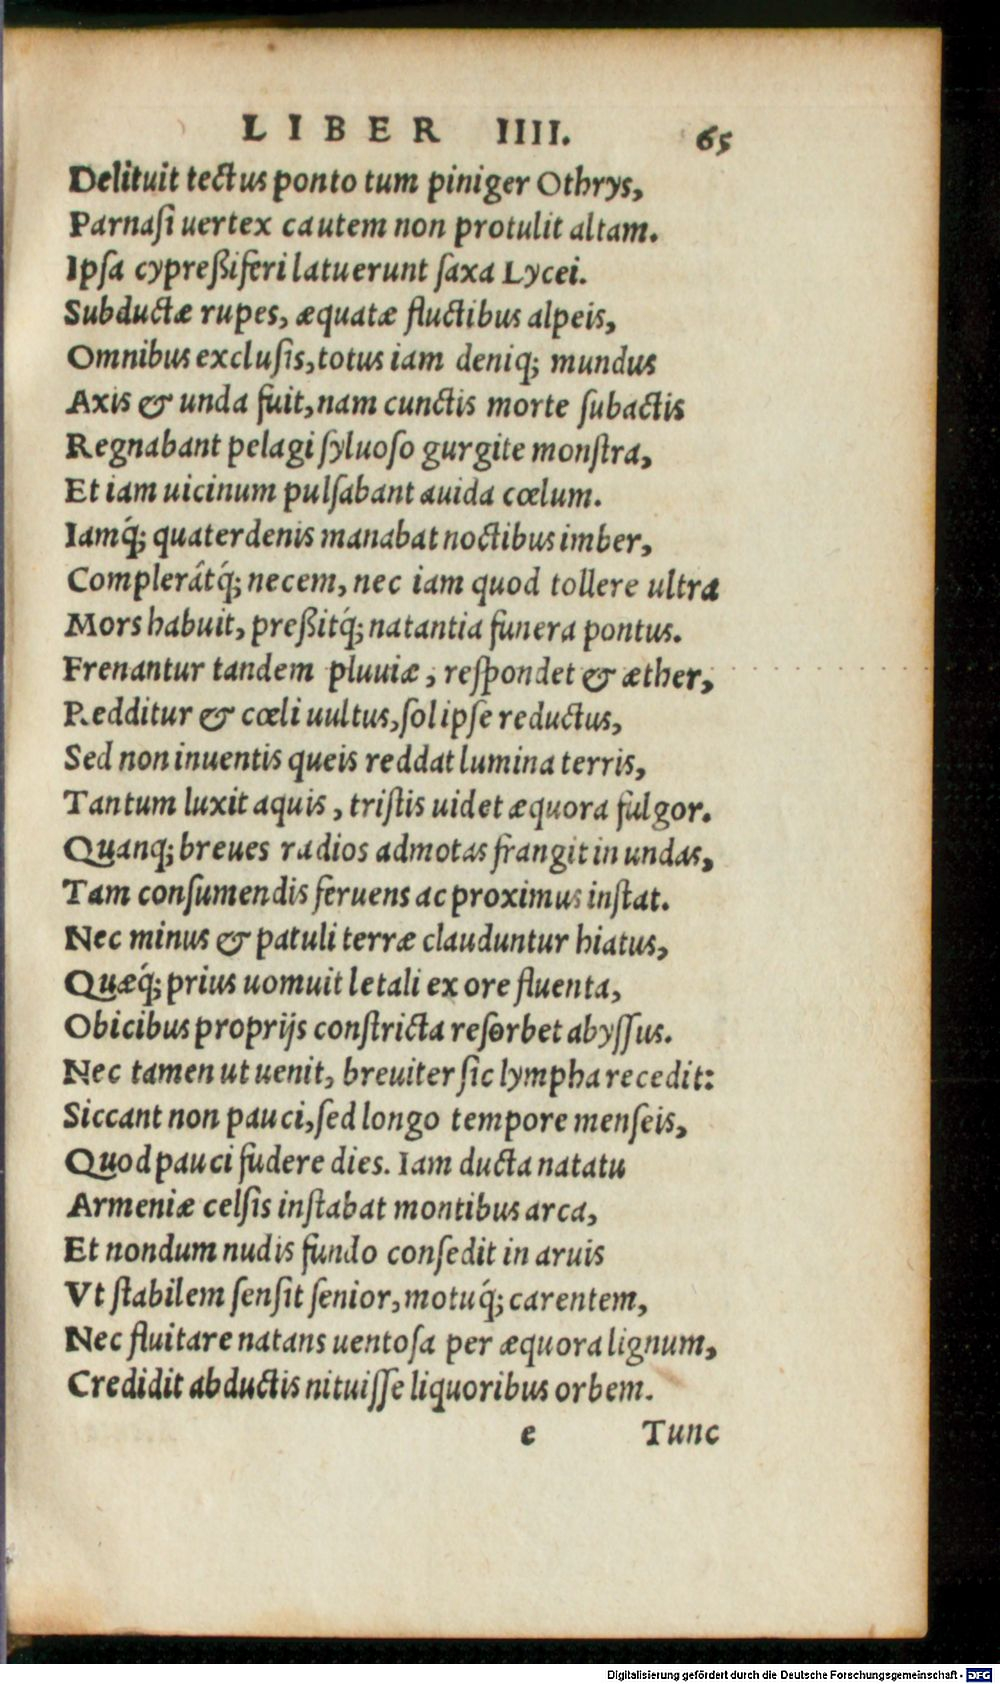 LIBER IIII. 65
Delituit tectus ponto tum piniger Othrys,
Parnaſi uertex cautem non protulit altam.
Ipſa cypreßiferi latuerunt ſaxa Lycei.
Subductæ rupes, æquatæ fluctibus alpeis,
Omnibus excluſis, totus iam deniq; mundus
Axis & unda fuit, nam cunctis morte ſubactis
Regnabant pelagi ſyluoſo gurgite monſtra,
Et iam uicinum pulſabant auida cœlum.
Iamq́; quaterdenis manabat noctibus imber,
Complerãtq́; necem, nec iam quod tollere ultra
Mors habuit, preßitq́; natantia funera pontus.
Frenantur tandem pluuiæ, reſpondet & æther,
Redditur & cœli uultus, ſol ipſe reductus,
Sed non inuentis queis reddat lumina terris,
Tantum luxit aquis, triſtis uidet æquora fulgor.
Quanq; breues radios admotas frangit in undas,
Tam conſumendis feruens ac proximus inſtat.
Nec minus & patuli terræ clauduntur hiatus,
Quæq́; prius uomuit letali ex ore fluenta,
Obicibus proprijs conſtricta reſorbet abyſſus.
Nec tamen ut uenit, breuiter ſic lympha recedit:
Siccant non pauci, ſed longo tempore menſeis,
Quod pauci fudere dies. Iam ducta natatu
Armeniæ celſis inſtabat montibus arca,
Et nondum nudis fundo conſedit in aruis
Vt ſtabilem ſenſit ſenior, motuq́; carentem,
Nec fluitare natans uentoſa per æquora lignum,
Credidit abductis nituiſſe liquoribus orbem.
e Tunc
Digitalisierung gefördert durch die Deutsche Forschungsgemeinschaft - DFG